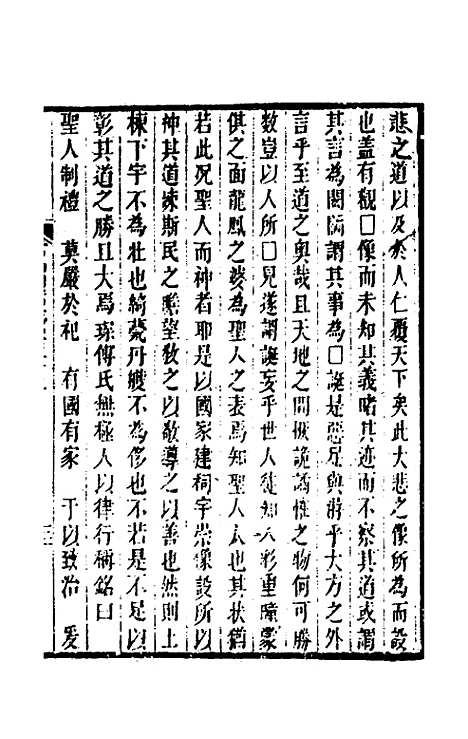 悲之道以及於人仁覆天下矣此大悲之像所為而設
也盖有觀□像而未知其義睹其迹而不察其道或謂
其言為閎誕謂其事為□誕是惡足與語乎大方之外
言乎至道之奥哉且天地之間恢詭譎怪之物何可勝
數豈以人所□見遂謂誕妄乎世人徒知八彩重瞳蒙
倛之面龍鳳之姿為聖人之表焉知聖人太也其状猶
若此况聖人而神者耶是以國家建祠宇崇像設所以
神其道竦斯民之瞻望敎之以敬導之以善也然則上
棟下宇不為壮也綺甍丹艧不為侈也不若是不足以
彰其道之勝且大焉琛傳氏無極人以律行稱銘曰
聖人制禮 莫嚴於祀 有國有家 于以致治 爰